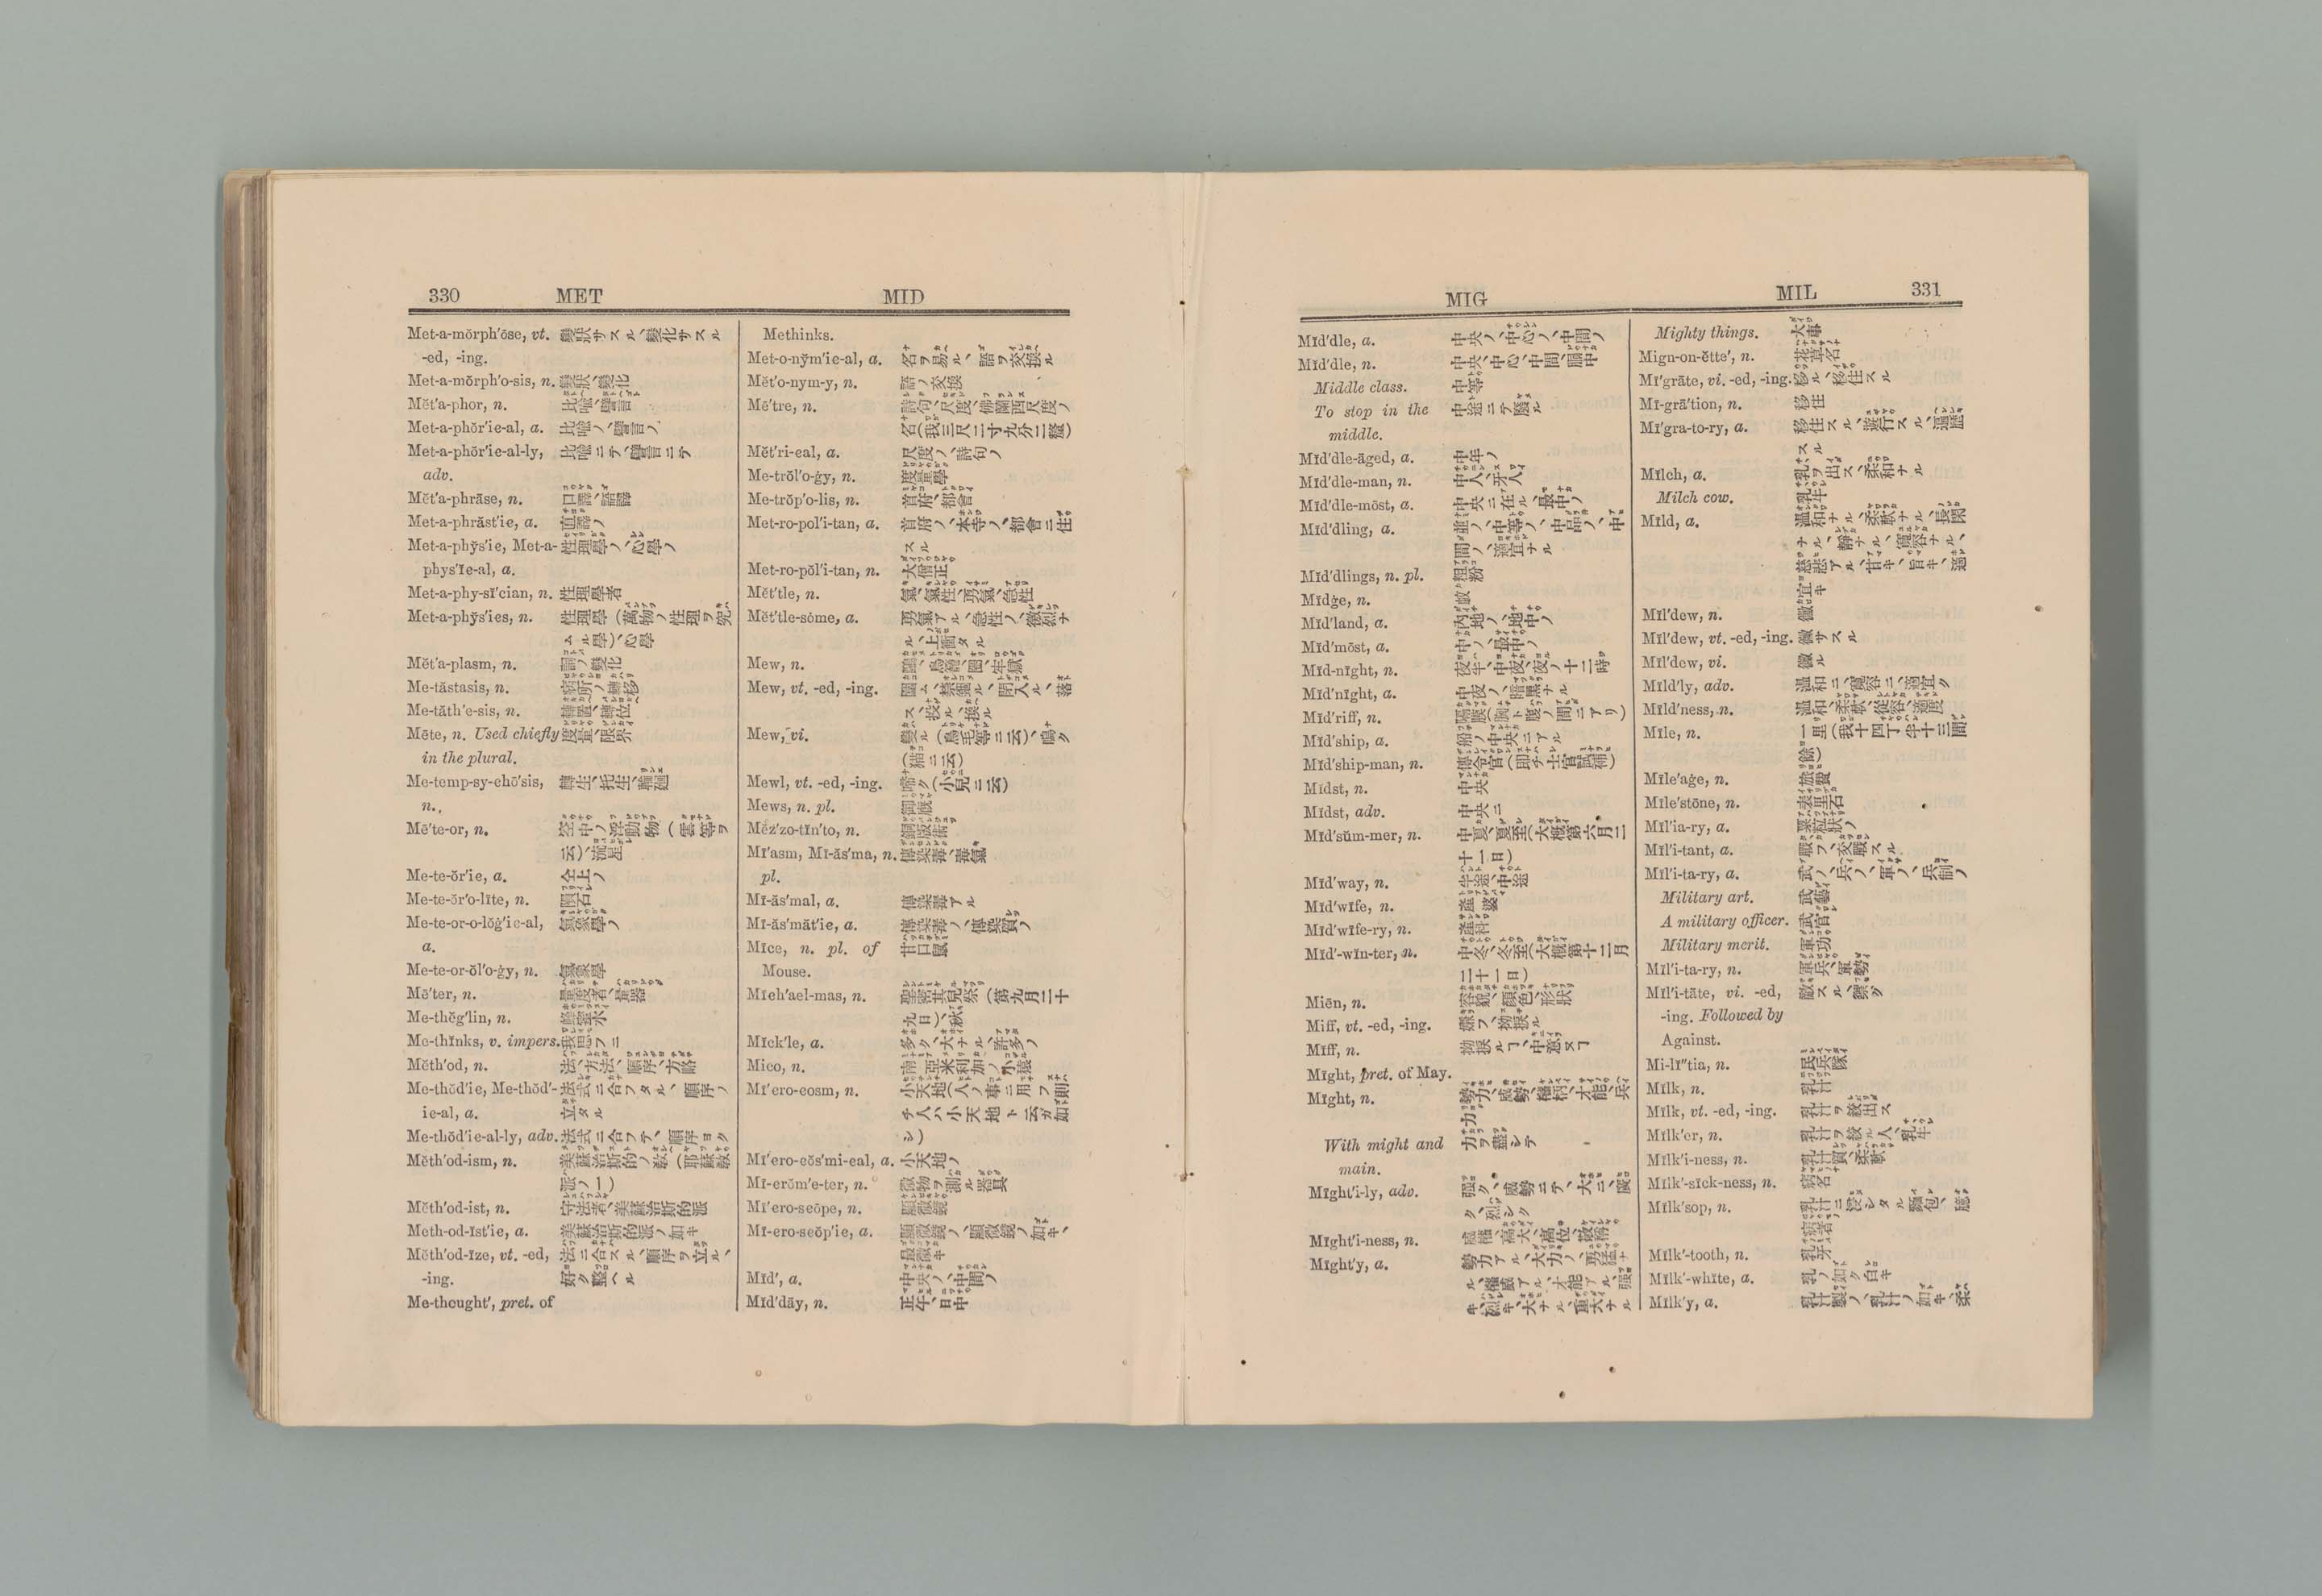 330 MET MID
Met-a-môrph'ōse, vt. 變狀サスル、變化サスル
-ed, -ing.
Met-a-môrph'o-sis, n. 變狀、變化
Mĕt'a-phor, n. 比喩、譬言
Met-a-phŏr'ic-al, a. 比喩ノ、譬言ノ
Met-a-phŏr'ic-al-ly, 比喩ニテ、譬言ニテ
adv.
Mĕt'a-phrāse, n. 口譯、語譯
Met-a-phrăst'ic, a. 直譯ノ
Met-a-phy̆s'ic, Met-a- 性理學ノ、心學ノ
phys'ĭc-al, a.
Met-a-phy-sĭ'cian, n. 性理學者
Met-a-phy̆s'ics, n. 性理學(萬物ノ性理ヲ究
ムル學)、心學
Mĕt'a-plasm, n. 詞ノ變化
Me-tăstasis, n. 病所ノ轉移
Me-tăth'e-sis, n. 轉置、轉位
Mēte, n. Used chiefly 度量、限界
in the plural.
Me-temp-sy-chō'sis, 轉生、托生、輪廻
n.
Mē'te-or, n. 空中ノ浮動物(雲等ヲ
云)、流星
Me-te-ŏr'ic, a. 仝上ノ
Me-te-ŏr'o-līte, n. 隕石
Me-te-or-o-lŏġ'ic-al, 氣象學ノ
a.
Me-te-or-ŏl'o-ġy, n. 氣象學
Mē'ter, n. 量度者、量器
Me-thĕg'lin, n. 蜂蜜水
Me-thĭnks, v. impers. 我思フニ
Mĕth'od, n. 法、方法、順序、方略
Me-thŏd'ic, Me-thŏd'- 法式ニ合フタル、順序ノ
ic-al, a. 立タル
Me-thŏd'ic-al-ly, adv. 法式ニ合フテ、順序ヨク
Mĕth'od-ism, n. 美蘇治斯的ノ教(耶蘇教
派ノ一)
Mĕth'od-ist, n. 守法者、美蘇治斯的派
Meth-od-ĭst'ic, a. 美蘇治斯的派ノ如キ
Mĕth'od-īze, vt. -ed, 法ニ合スル、順序ヲ立ル、
-ing. 好ク整ヘル
Me-thought', pret. of
Methinks.
Met-o-ny̆m'ic-al, a. 名ヲ易ル、語ヲ交換ル
Mĕt'o-nym-y, n. 語ノ交換
Mē'tre, n. 詩句、尺度、佛蘭西尺度ノ
名(我三尺二寸九分二釐)
Mĕt'ri-cal, a. 尺度ノ、詩句ノ
Me-trŏl'o-ġy, n. 度量學
Me-trŏp'o-lis, n. 首府、都會
Met-ro-pol'i-tan, a. 首府ノ、本寺ノ、都會ニ住
スル
Met-ro-pŏl'i-tan, n. 大僧正
Mĕt'tle, n. 氣、氣性、勇氣、急性
Mĕt'tle-sóme, a. 勇氣アル、急性ノ、激烈ナ
ル、上衝タル
Mew, n. 鷗、鳥籠、圈、牢獄
Mew, vt. -ed, -ing. 圍ム、禁錮ル、閉入ル、落
ス、投ル、換ル
Mew, vi. 變ル(鳥毛等ニ云)、鳴ク
(猫ニ云)
Mewl, vt. -ed, -ing. 啼ク(小兒ニ云)
Mews, n. pl. 御厩
Mĕz'zo-tĭn'to, n. 銅版術
Mī'asm, Mī-ăs'ma, n. 傳染毒、毒氣
pl.
Mī-ăs'mal, a. 傳染毒アル
Mī-ăs'măt'ic, a. 傳染毒ノ、傳染質ノ
Mīce, n. pl. of 甘口鼠
Mouse.
Mich'ael-mas, n. 聖密其兒祭(第九月二十
九日)、秋
Mĭck'le, a. 多ク、大ナル、許多ノ
Mico, n. 南亞米利加ノ小猿
Mī'cro-cosm, n. 小天地(人ノ事ニ用フ則
チ人ハ小天地ト云ガ如
シ)
Mī'cro-cŏs'mi-cal, a. 小天地ノ
Mī-crŏm'e-ter, n. 微物ヲ測ル器具
Mī'cro-scōpe, n. 顯微鏡
Mī-cro-scŏp'ic, a. 顯微鏡ノ、顯微鏡ノ如キ、
最微キ
Mĭd', a. 中央ノ、中間ノ
Mĭd'dāy, n. 正午、日中
MIG MIL 331
Mĭd'dle, a. 中央ノ、中心ノ、中間ノ
Mĭd'dle, n. 中央、中心、中間、關中
Middle class. 中等
To stop in the 中途ニテ廢ル
middle.
Mĭd'dle-āged, a. 中年ノ
Mĭd'dle-man, n. 中人、牙人
Mĭd'dle-mōst, a. 中央ニ在ル、最中ノ
Mĭd'dling, a. 並ノ、中等ノ、中品ノ、中
間ノ、適宜ナル
Mĭd'dlings, n. pl. 粗粉
Mĭdġe, n. 蚊
Mĭd'land, a. 內地ノ、地中ノ
Mĭd'mōst, a. 中ノ、最中ノ
Mĭd-nīght, n. 夜半、中夜、夜ノ十二時
Mĭd'nīght, a. 中夜ノ、暗黑ナル
Mĭd'riff, n. 隔膜(胸ト腹ノ間ニアリ)
Mĭd'ship, a. 船ノ中央ニアル
Mĭd'ship-man, n. 傳令官(即チ士官試補)
Mĭdst, n. 中央
Mĭdst, adv. 中央ニ
Mĭd'sŭm-mer, n. 中夏、夏至(大槪第六月二
十一日)
Mĭd'way, n. 半途、中途
Mĭd'wīfe, n. 產婆
Mĭd'wīfe-ry, n. 產科
Mĭd'-wĭn-ter, n. 中冬、冬至(大槪第十二月
二十一日)
Miēn, n. 容貌、顏色、形狀
Miff, vt. -ed, -ing. 嫌フ、拗捩ル
Mĭff, n. 拗捩ルヿ、中意ヌヿ
Mīght, pret. of May.
Mīght, n. 勢力、威勢、權柄、才能、兵
力
With might and 力ヲ盡シテ
main.
Mīght'i-ly, adv. 强ク、威勢ニテ、大ニ、廣
ク、烈シク
Mīght'i-ness, n. 威權、高大、高位、敬稱
Mīght'y, a. 勢力アル、大力ノ、勇猛ナ
ル、權威アル、才能アル、强
キ、烈キ、大ナル、重大ナル
Mighty things. 大事
Mign-on-ĕtte', n. 花草名
Mī'grāte, vi. -ed, -ing. 移ル、移住スル
Mī-grā'tion, n. 移住
Mī'gra-to-ry, a. 移住スル、遊行スル、遍歷
スル
Mĭlch, a. 乳ヲ出ス、柔和ナル
Milch cow. 乳牛
Mīld, a. 溫和ナル、柔軟ナル、長閑
ナル、靜ナル、寬容ナル、
慈悲アル、甘キ、旨キ、適
宜キ
Mĭl'dew, n. 黴
Mĭl'dew, vt. -ed, -ing. 黴サスル
Mĭl'dew, vi. 黴ル
Mīld'ly, adv. 溫和ニ、寬容ニ、適宜ク
Mīld'ness, n. 溫和、柔軟、從容、適度
Mīle, n. 一里(我十四丁半十三間
餘)
Mīle'aġe, n. 旅費
Mīle'stōne, n. 表里石
Mĭl'ia-ry, a. 粟粒狀ノ
Mĭl'i-tant, a. 戰フ、交戰スル
Mĭl'i-ta-ry, a. 武ノ、兵ノ、軍ノ、兵制ノ
Military art. 武藝
A military officer. 武官
Military merit. 軍功
Mĭl'i-ta-ry, n. 軍兵、軍勢
Mĭl'i-tāte, vi. -ed, 敵スル、禦グ
-ing. Followed by
Against.
Mi-lĭ"tia, n. 民兵隊
Mĭlk, n. 乳汁
Mĭlk, vt. -ed, -ing. 乳汁ヲ絞出ス
Mĭlk'er, n. 乳汁ヲ絞ル人、乳牛
Mĭlk'i-ness, n. 乳汁質、柔軟
Mĭlk'-sĭck-ness, n. 病名
Mĭlk'sop, n. 乳汁ニ浸シタル麵包、臆
病者
Mĭlk'-tooth, n. 乳牙
Mĭlk'-whīte, a. 乳ノ如ク白キ
Mĭlk'y, a. 乳汁製ノ、乳汁ノ如キ、柔